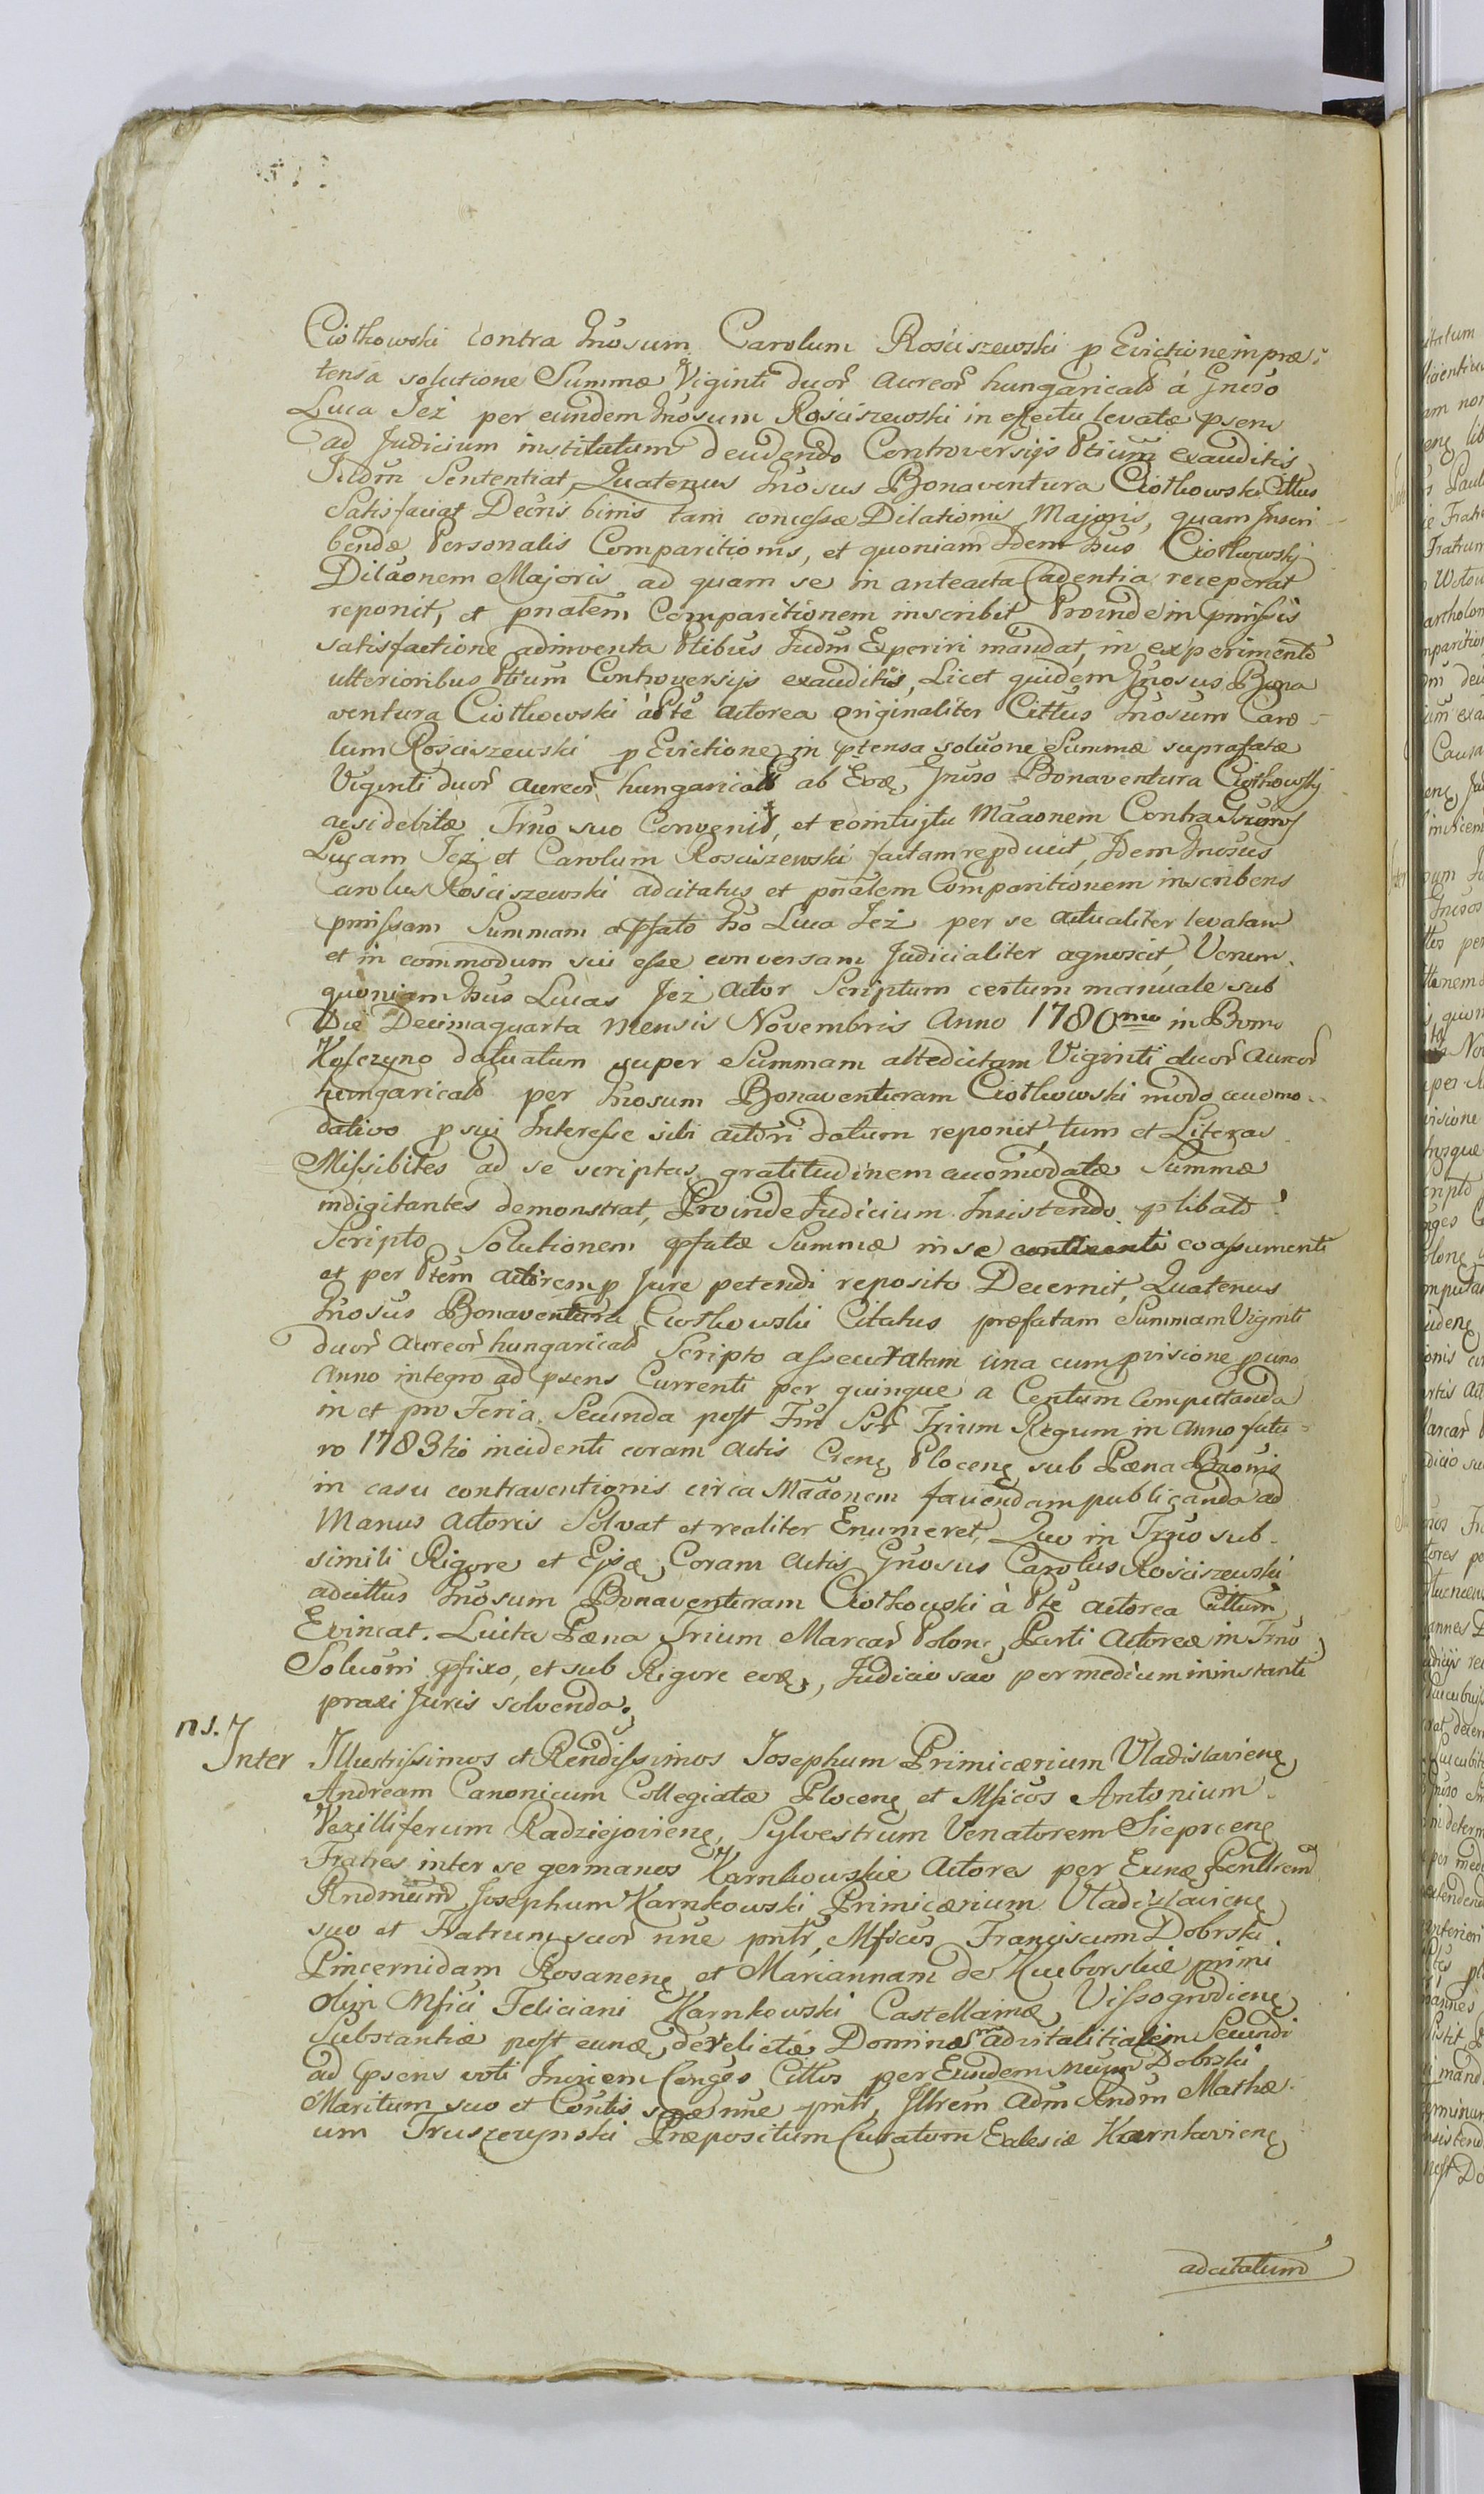 Ciołkowski contra Gnosum Carolum Rościszewski p Evictione in præ-
tensa solutione Summæ Viginti duor Aureor hungarical à Gneso
Luca Jeż per eundem Gnosum Rościszewski in effectu levatæ psens
ad Judicium institutum deudendo Controversijs Ptium exauditis,
Judm Sententiat, Quatenus Gnosus Bonaventura Ciołkowski Cittus
Satisfaciat Decris binis tam concessæ Dilationis Majoris, quam Inscri-
bendæ Personalis Comparitionis, et quoniam Idem Gnus Ciołkowski
Dilaonem Majoris ad quam se in anteacta Cadentia receperat
reponit, et pnalem Comparitionem inscribit Proinde in pmissis
satisfactione adinventa Ptibus Judm Experiri mandat, in experimento
ulterioribus Ptium Controversijs exauditis, Licet quidem Gnosus Bona
ventura Ciołkowski à Pte Actorea originaliter Cittus Gnosum Caro-
lum Rościszewski p Evictione in ptensa soluone Summæ suprafatæ
Viginti duor Aureor hungarical ab Eod Gnoso Bonaventura Ciołkowski
acsi debitæ Trno suo Convenit, et eointuitu Mãaonem Contra Gnosos
Lucam Jeż et Carolum Rościszewski factam repducit, Idem Gnosus
Carolus Rościszewski adcitatus et pnalem Comparitionem inscribens
pmissam Summam a pfato Gno Luca Jeż per se actualiter levatam
et in commodum sui esse conversam Judicialiter agnoscit, Verum
quoniam Gnus Lucas Jeż Actor Scriptum certum manuale sub
Die Decimaquarta Mensis Novembris Anno 1780mo in Bonis
Kosczyno datuatum super Summam altedictam Viginti duor Aureor
hungarical per Gnosum Bonaventuram Ciołkowski modo accomo-
dativo p sui Interesse sibi Actori datum reponit, tum et Literas
Missibiles ad se scriptas gratitudinem accomodatæ Summæ
indigitantes demonstrat, Proinde Judicium Insistendo plibato
Scripto Solutionem pfatæ Summæ in se continenti eoassumenti
et per Ptem Actorem p Jure petendi reposito Decernit, Quatenus
Gnosus Bonaventura Ciołkowski Citatus præfatam Summam Viginti
duor Aureor hungarical Scripto assecuratam una cum pvisione p uno
Anno integro ad psens Currenti per quinque a Centum Computanda
in et pro Feria Secunda post Fm Ssr Trium Regum in Anno futu-
ro 1783tio incidenti coram Actis Crens Plocens sub Pæna Bnonis
in casu contraventionis circa Mãaonem faciendam publicanda ad
Manus Actoris Solvat et realiter Enumeret, Quo in Trno sub
simili Rigore et Eisd Coram Actis Gnosus Carolus Rościszewski
adcittus Gnosum Bonaventuram Ciołkowski à Pte Actorea Cittum
Evincat. Luita Pæna Trium Marcar Polonc Parti Actoreæ in Trno
Soluoni pfixo, et sub Rigore eod, Judicio vao per medium in instanti
praxi Juris solvenda.
ns. Inter Illustrissimos et Rendissimos Josephum Primicærium Vladislaviens
Andream Canonicum Collegiatæ Plocens et Mficos Antonium
Vexilliferum Radziejoviens, Sylvestrum Venatorem Sieprcens
Fratres inter se germanos Karnkowskie Actores per Eund Perillrem
Rndmum Josephum Karnkowski Primicærium Vladislaviens
suo et Fratrum suor nne pntr, Mficos Franciscum Dobrski
Pincernidam Rosanens et Mariannam de Kucborskie primi
olim Mfici Feliciani Karnkowski Castellani Vissogrodiens
Substantiæ post eund derelictæ Dominam advitalitialem Secundi
ad psens voti Invicem Conges Cittos per Eundem Mcum Dobrski
Maritum suo et Contis suæ nne pntr, Illrem Adm Rndm Mathæ-
um Truszczynski Præpositum Curatum Ecclesiæ Karnkoviens
adcitatum